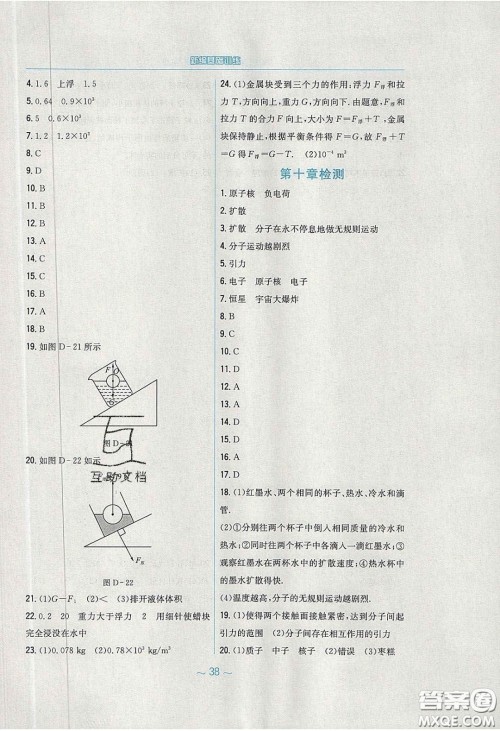 新编基础训练
4. 1.6 上浮 1.5
5. 0.64 0.9×10³
6. 5 0.6×10³
7. 1.2 1.2×10³
8. C
9. D
10. B
11. B
12. A
13. D
14. C
15. A
16. A
17. B
18. B
19. 如图 D-21 所示
F
图 D-21
20. 如图 D-22 如示
互助文档
F浮
图 D-22
21. (1)G－F₁ (2)＜ (3)排开液体体积
22. 0.2 20 重力大于浮力 2 用细针使蜡块
完全浸没在水中
23. (1)0.078 kg (2)0.78×10³
24. (1)金属块受到三个力的作用,浮力 F浮和拉
力 T,方向向上,重力 G,方向向下。由题意,F浮和
拉力 T 的合力 F 方向向上,大小为 F＝F浮＋T,金属
块保持静止,根据平衡条件得 F＝G,故 F浮＋T
＝G 得 F浮＝G－T. (2)10⁻⁴ m³
第十章检测
1. 原子核 负电荷
2. 扩散
3. 扩散 分子在永不停息地做无规则运动
4. 分子运动越剧烈
5. 引力
6. 电子 原子核 电子
7. 恒星 宇宙大爆炸
8. B
9. C
10. C
11. D
12. A
13. D
14. A
15. A
16. A
17. D
18. (1)红墨水、两个相同的杯子、热水、冷水和滴
管.
(2)①分别往两个杯子中倒入相同质量的冷水和
热水;②同时往两杯水中滴入一滴红墨水;③
观察红墨水在两杯水中的扩散速度;④热水杯中
的墨水扩散得快.
(4)温度越高,分子的无规则运动越剧烈
19. (1)使得两个接触面接触紧密,达到分子间
引力的范围 (2)分子间存在相互作用的引力
20. (1)质子 中子 核子 (2)错误 (3)枣糕
～ 38 ～
答案圈
MXQE.COM